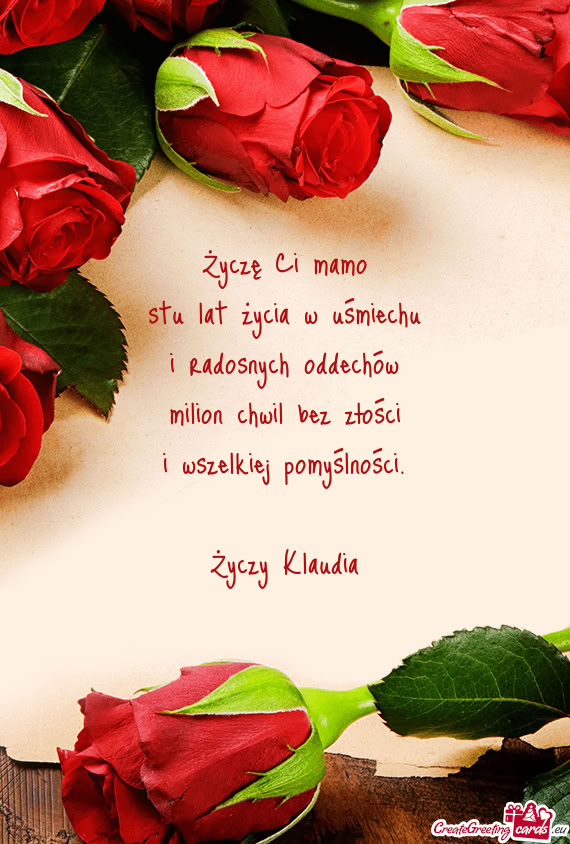 Życzę Ci mamo
stu lat życia w uśmiechu
i radosnych oddechów
milion chwil bez złości
i wszelkiej pomyślności.
Życzy Klaudia
CreateGreetingcards.eu